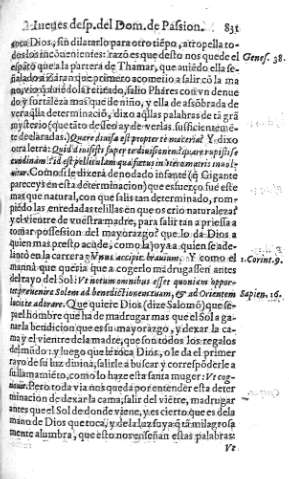 Iueves desp. del Dom. de Passion. 831
toca Dios, sin dilatarlo para otro tiẽpo, atropella to-
dos los incõuenientes: razõ es que desto nos quede el Genes. 38.
espãto que a la partera de Thamar, que auiẽdo ella se-
ñalado a Zaran que primero acometio a salir cõ la ma
no, vio q̃ auiẽdola retirado, salio Phares con vn denue
do y fortaleza mas que de niño, y ella de assõbrada de
ver aq̃lla determinació, dixo aq̃llas palabras de tã grã
mysterio (que tãto desseo ay de verlas suficientemẽ-
te declaradas.) Quare diuisa est propter te maceria? Y dixo
otra letra: Quid diuisisti super te diuisionem? quare rupisti se
cundinam? id est pelliculam qua fœtus in vtero matris inuol-
uitur. Como si le dixera: denodado infante (q̃ Gigante
pareceys en esta determinacion) que esfuerço fue este
mas que natural, con que salis tan determinado, rom-
piẽdo las entedadas telillas en que os criò naturaleza
y el vientre de vuestra madre, para salir tan a priessa a
tomar possession del mayorazgo? que lo da Dios a
quien mas presto acude, como la joya a quien se ade-
lantò en la carrera: Vnus accipit brauium. Y como el 1. Corint. 9.
manna que queria que a cogerlo madrugassen antes
del rayo del Sol: Vt notum omnibus esset quoniam oppor-
tet præuenire Solem ad benedictionem tuam, & ad Orientem Sapien. 16.
lucis te adorare. Que quiere Dios (dize Salomõ) que se-
pa el hombre que ha de madrugar mas que el Sol a ga-
narla bendicion que es su mayorazgo, y dexar la ca-
ma y el vientre de la madre, que son todos los regalos
del mũdo: y luego que le toca Dios, o le da el primer
rayo de su luz diuina, salirle a buscar y correspõderle a
su llamamiẽto, como lo haze esta santa muger: Vt cog-
nouit. Pero toda via nos queda por entender esta deter
minacion de dexar la cama, salir del viẽtre, madrugar
antes que el Sol de donde viene, y es cierto que es de la
mano de Dios que toca, y de la luz suya q̃ tã milagrosa
mente alumbra, que esto nos enseñan estas palabras:
Vt